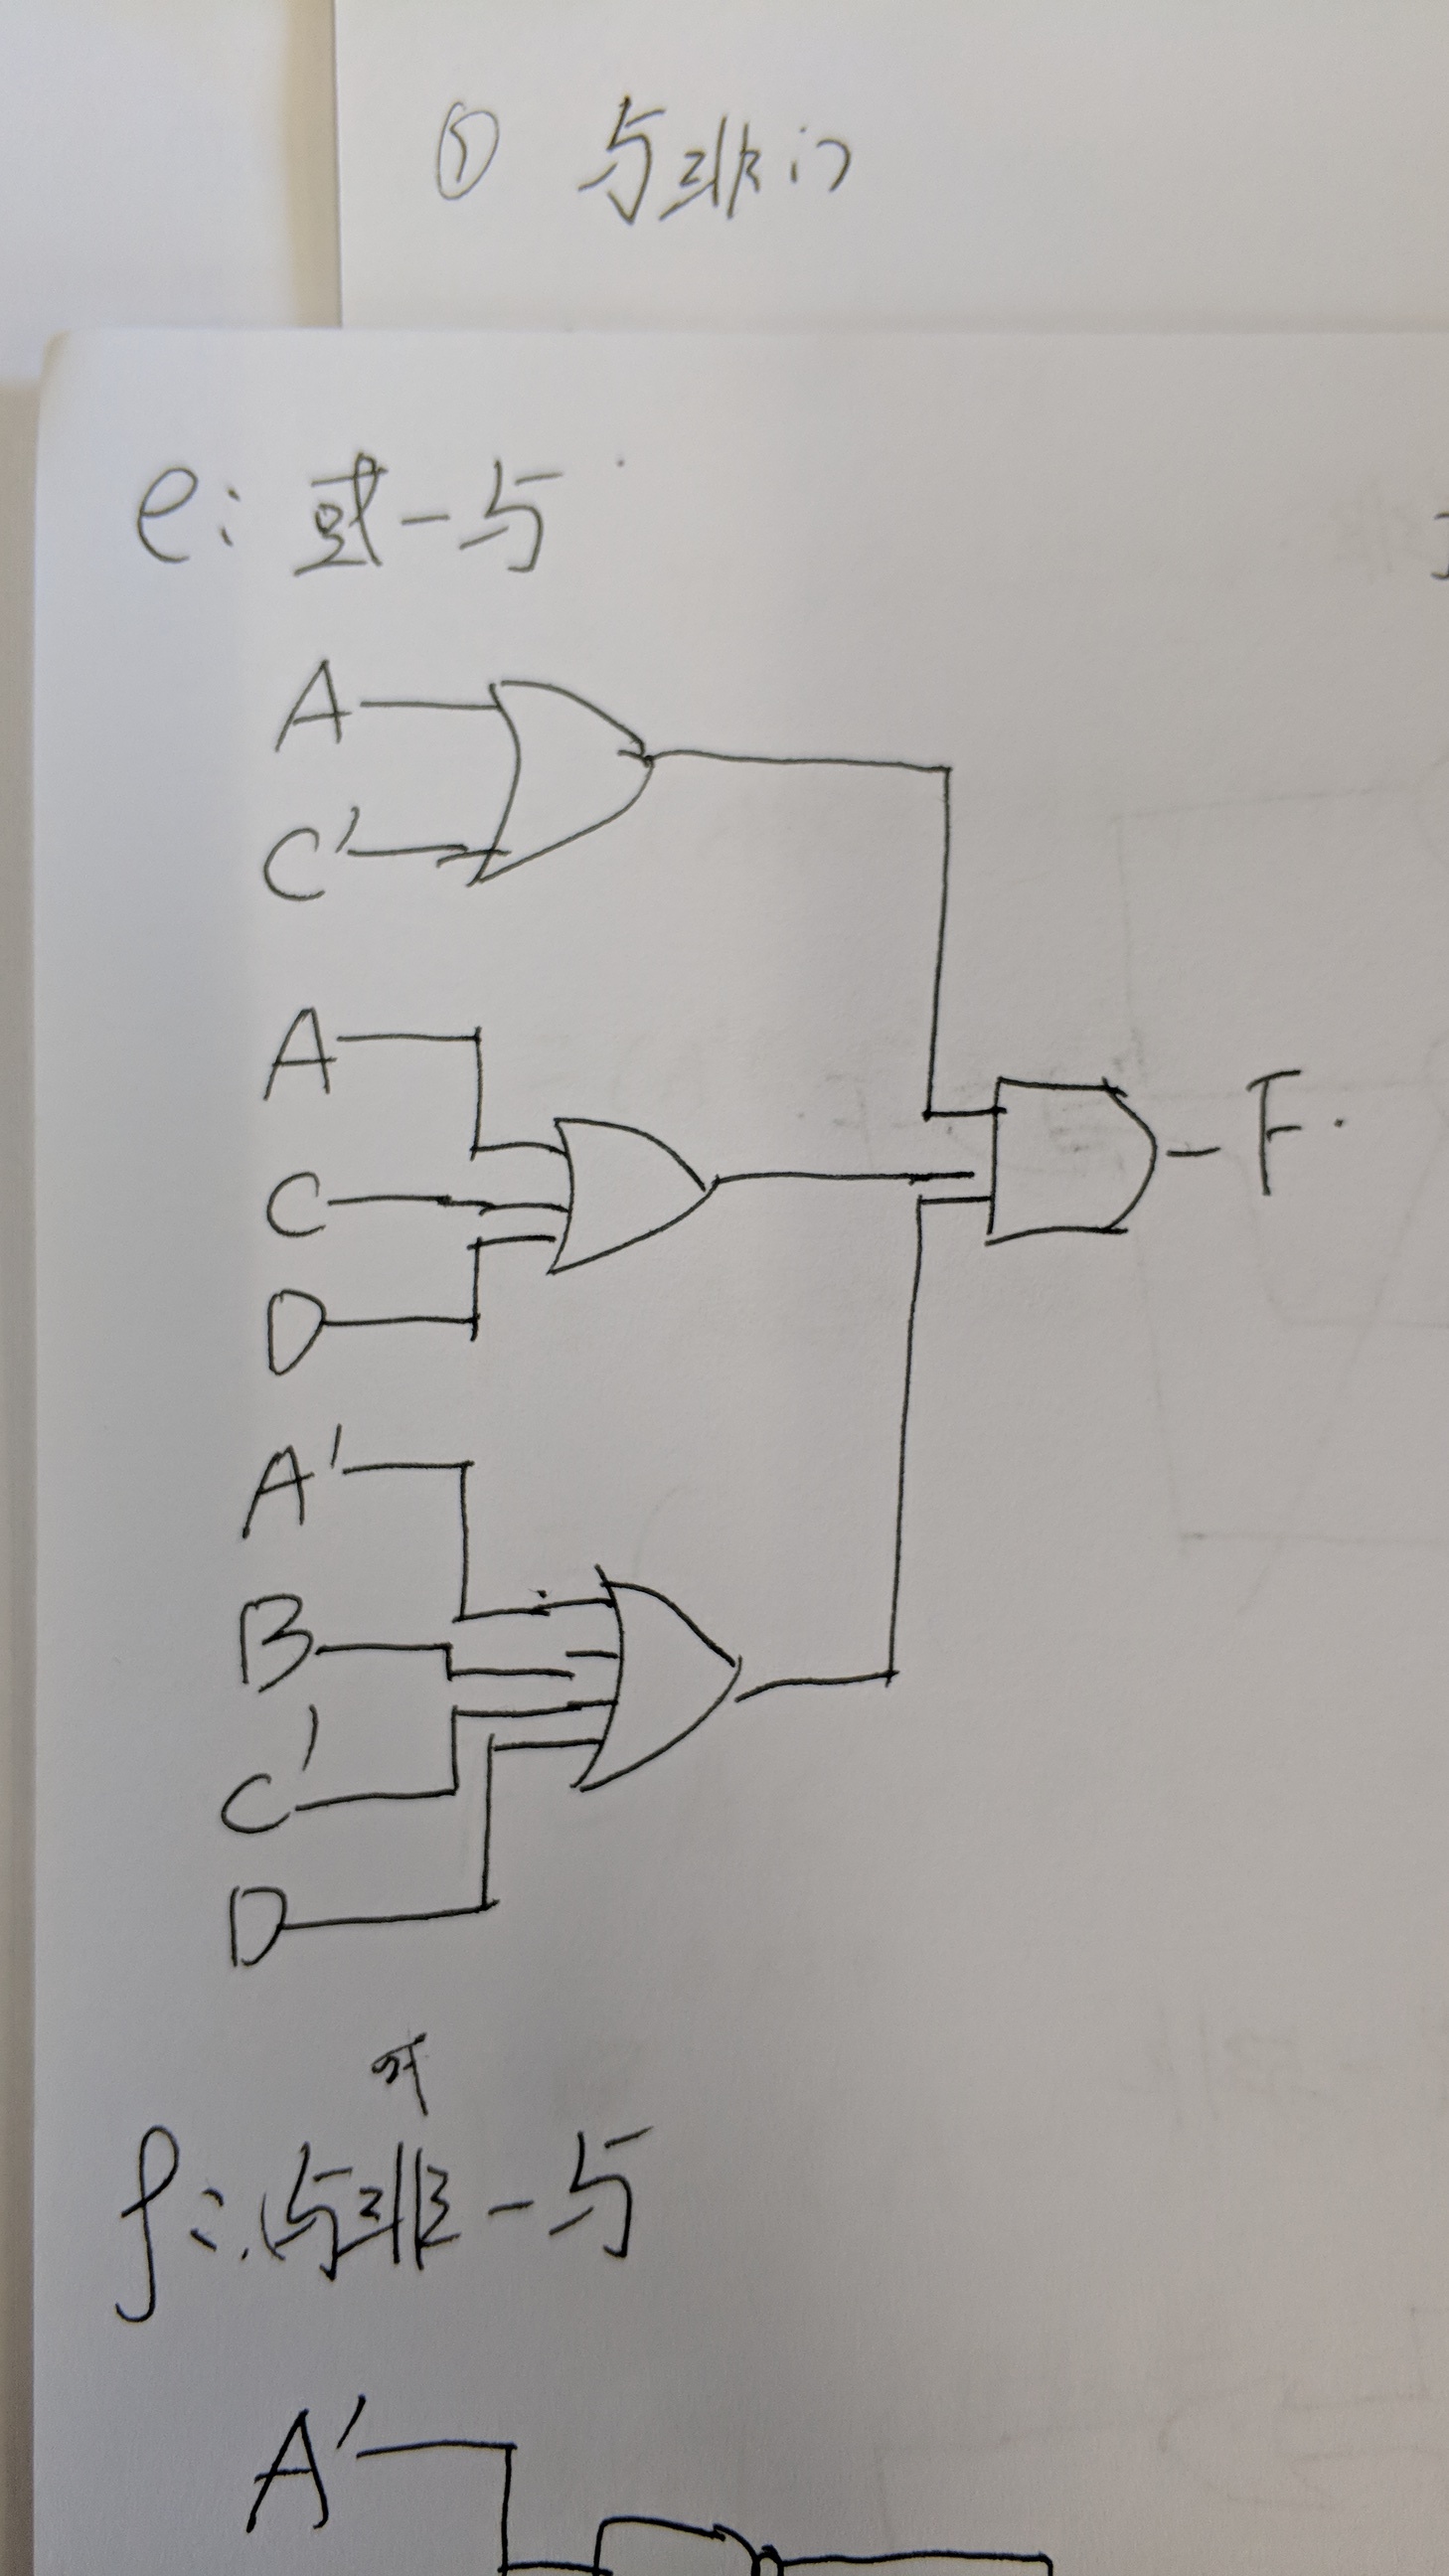 ① 与非门
e: 或-与
A
C'
A
C
F.
D
A'
B
C'
D
f: 与非-与
A'